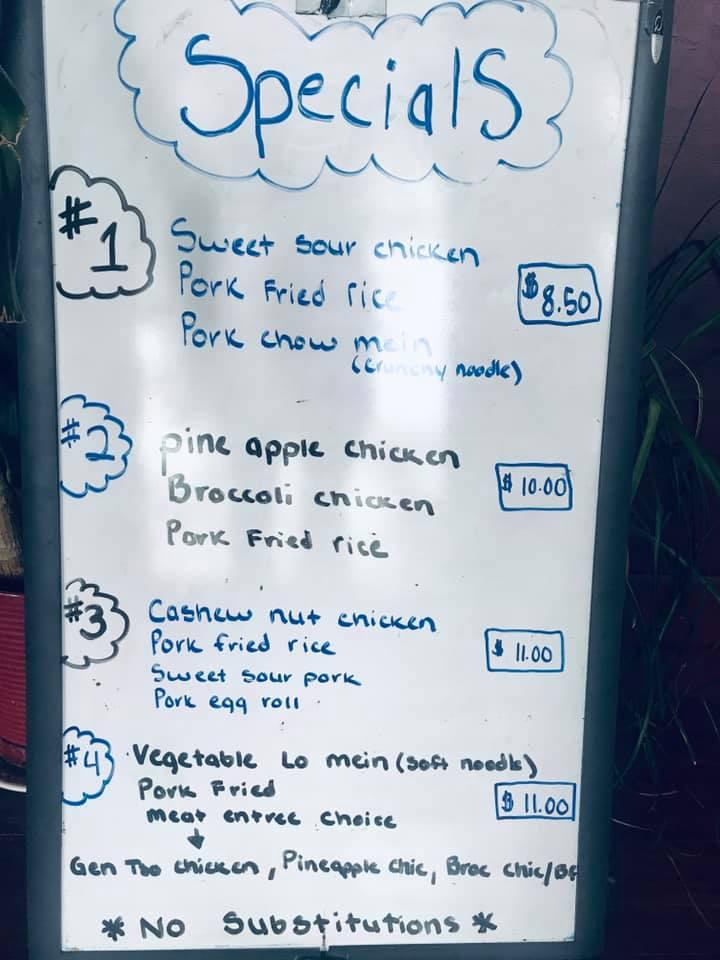 Specials
#1
Sweet sour chicken
Pork Fried rice
$8.50
Pork chow mein
(crunchy noodle)
#2
pine apple chicken
Broccoli chicken
$10.00
Pork Fried rice
#3
Cashew nut chicken
Pork fried rice
$11.00
Sweet sour pork
Pork egg roll
#4
Vegetable Lo mein (soft noodle)
Pork Fried
$11.00
meat entree choice
Gen Tso chicken, Pineapple chic, Broc chic/BF
* No Substitutions *